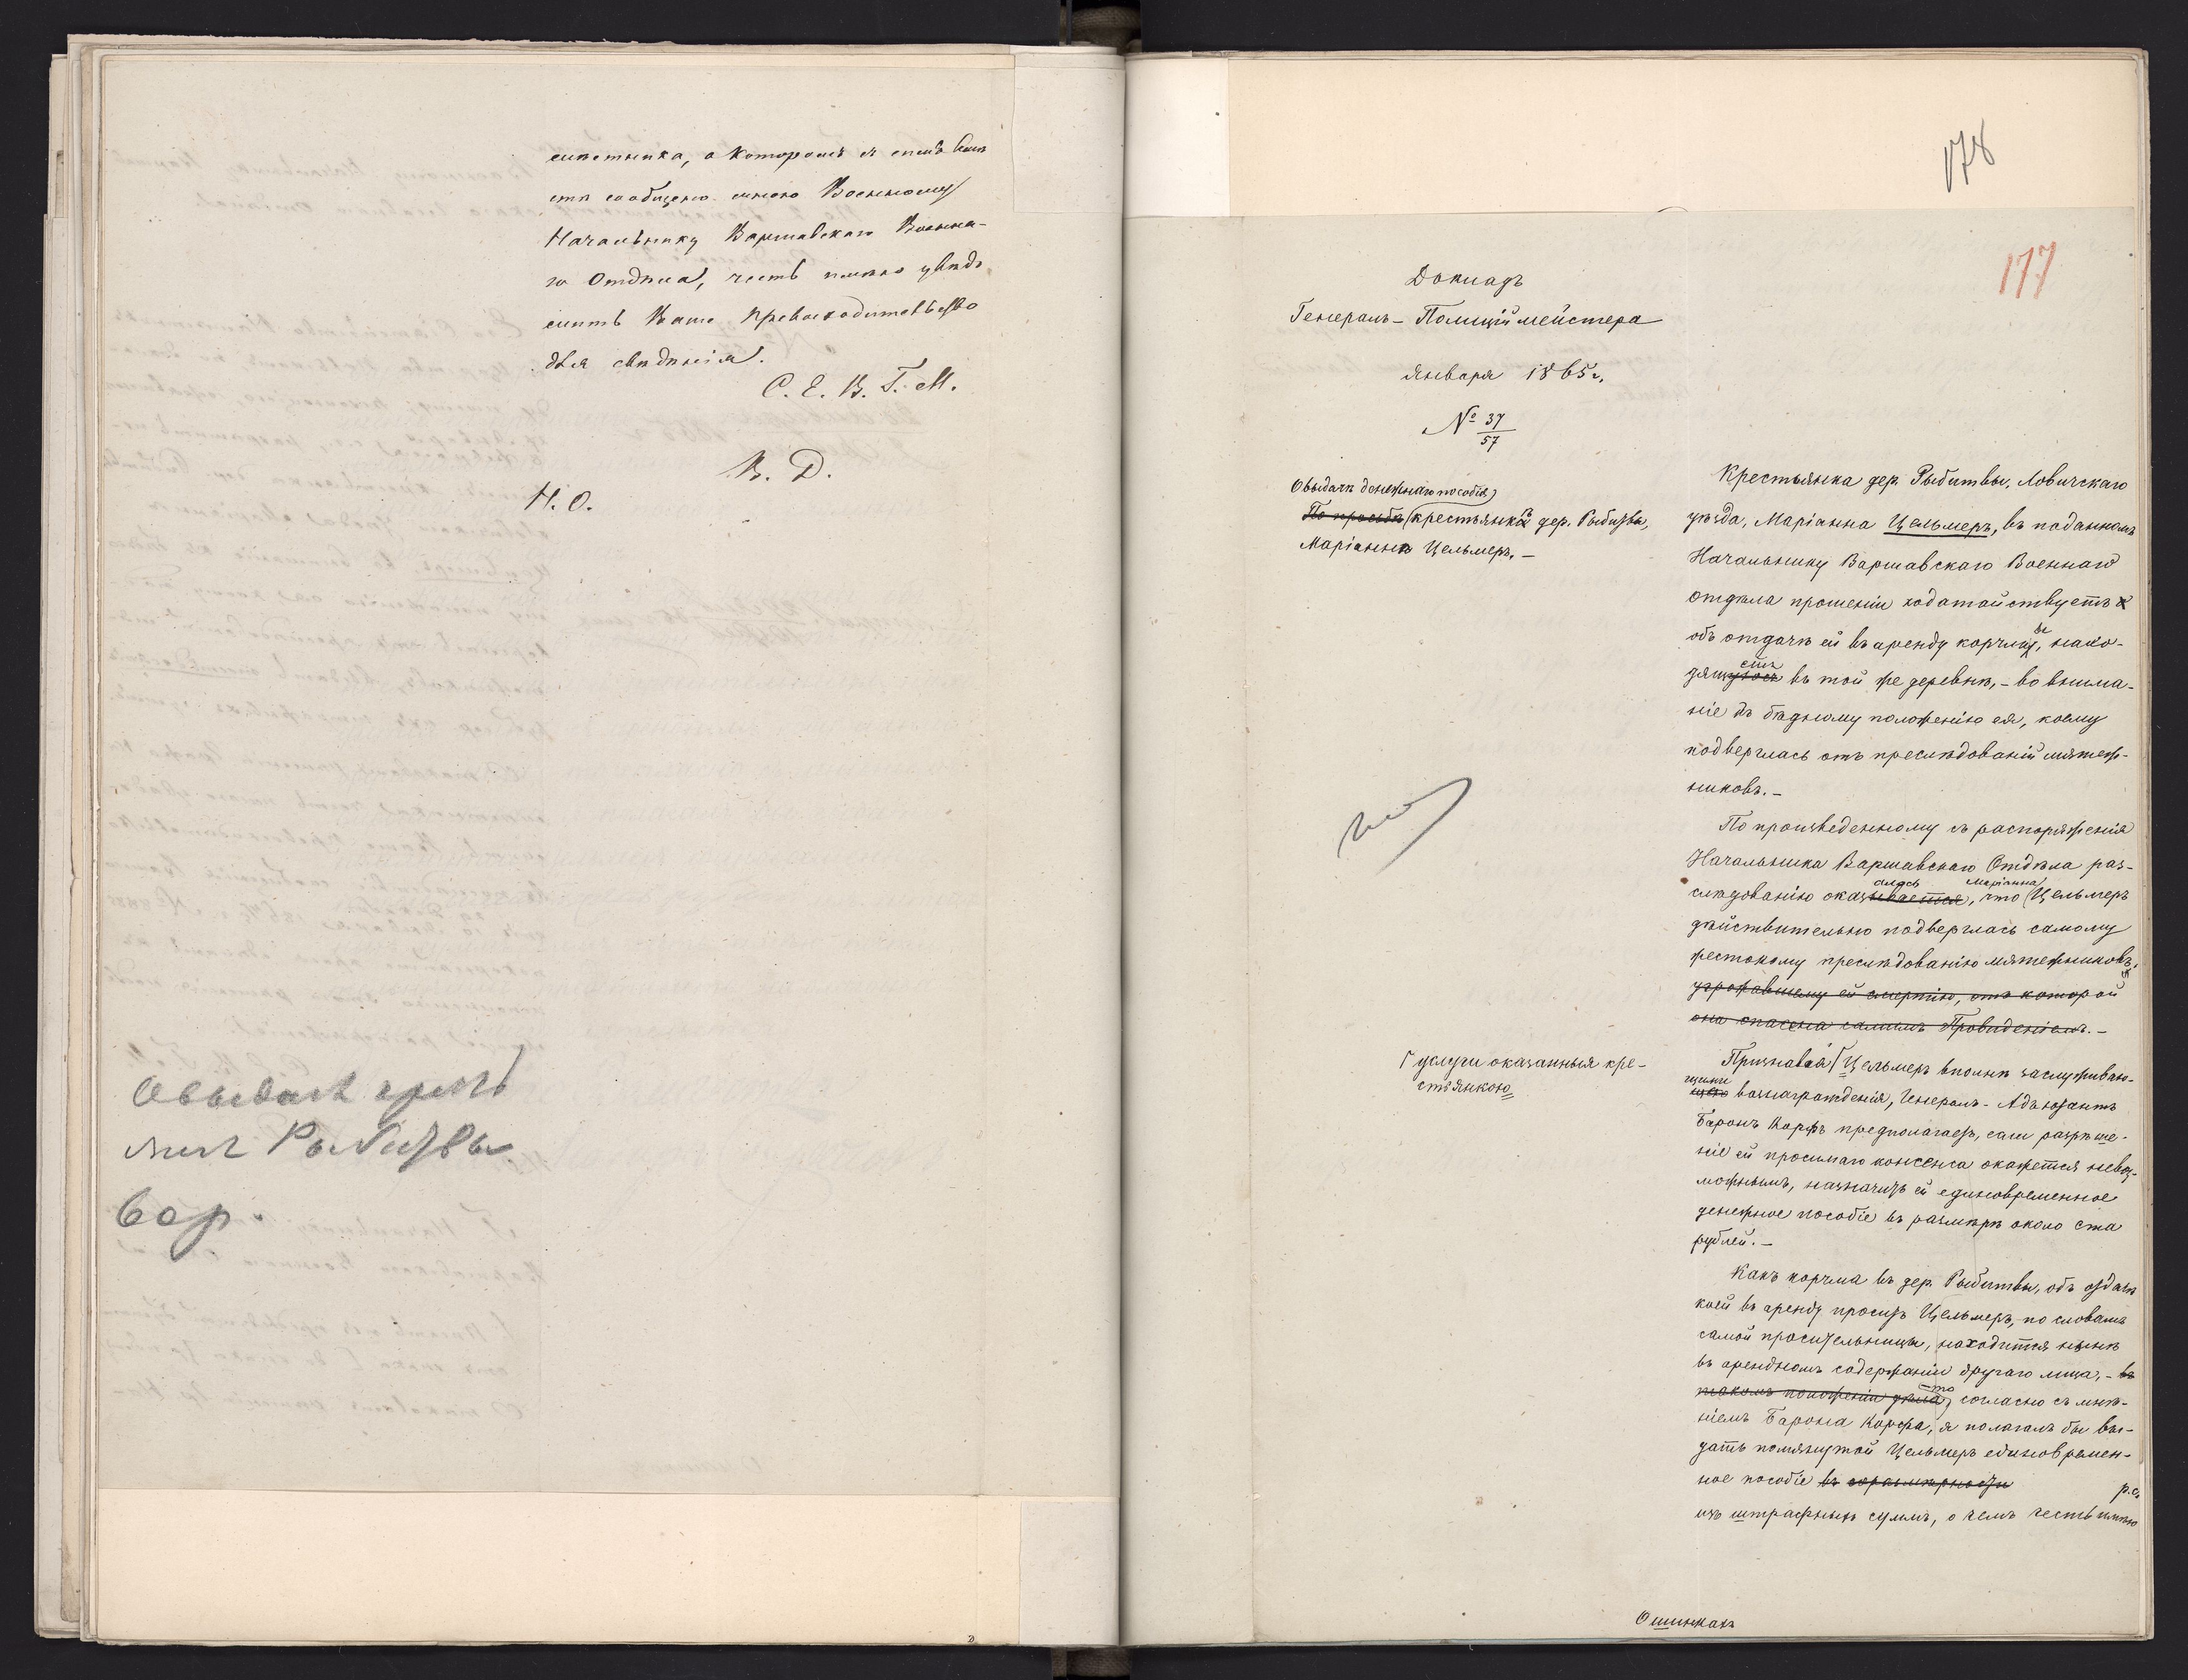 симетника, о которомъ я симъ вмѣ
стѣ сообщено мною Военному
Начальнику Варшавскаго Военна-
го Отдѣла, честь имѣю увѣдо
мить Ваше Превосходительство
для свѣдѣнія.
С. Е. В. Г. М.
В. Д.
Н. О.
О выдачѣ
Рыбитвы
178
177
Докладъ
Генералъ-Полиціймейстера
Января 1865 г.
№ 37/57
О выдачѣ денежнаго пособія
По просьбѣ крестьянкѣ дер. Рыбитвы,
Маріаннѣ Цельмеръ. –
Крестьянка дер. Рыбитвы, Ловичскаго
уѣзда, Маріанна Цельмеръ, въ поданномъ
Начальнику Варшавскаго Военнаго
отдѣла прошеніи ходатайствуетъ
объ отдачѣ ей въ аренду корчмы, нахо-
дящуюся въ той же деревнѣ, – во внима-
ніе къ бѣдному положенію ея, коему
подверглась отъ преслѣдованій мятеж-
никовъ. –
По произведенному съ распоряженія
Начальника Варшавскаго Отдѣла раз-
алось Маріанна
слѣдованію оказывается, что Цельмеръ
дѣйствительно подверглась самому
жестокому преслѣдованію мятежниковъ,
угрожавшему ей смертію, отъ которой
она спасена самимъ Провидѣніемъ. –
услуги оказанныя кре-
стьянкою
Признавая Цельмеръ вполнѣ заслуживаю-
щими
щею вознагражденія, Генералъ-Адъютантъ
Баронъ Корфъ предполагаетъ, если разрѣше-
ніе ей просимаго консенса окажется невоз-
можнымъ, назначить ей единовременное
денежное пособіе въ размѣрѣ около ста
рублей. –
Какъ корчма въ дер. Рыбитвы, объ отдачѣ
коей въ аренду проситъ Цельмеръ, по словамъ
самой просительницы, находится нынѣ
въ арендномъ содержаніи другаго лица, – въ
то
такомъ положеніи дѣла, согласно съ мнѣ-
ніемъ Барона Корфа, я полагалъ бы вы-
дать помянутой Цельмеръ единовремен-
ное пособіе въ соразмѣрности р. с.
изъ штрафныхъ суммъ, о чемъ честь имѣю